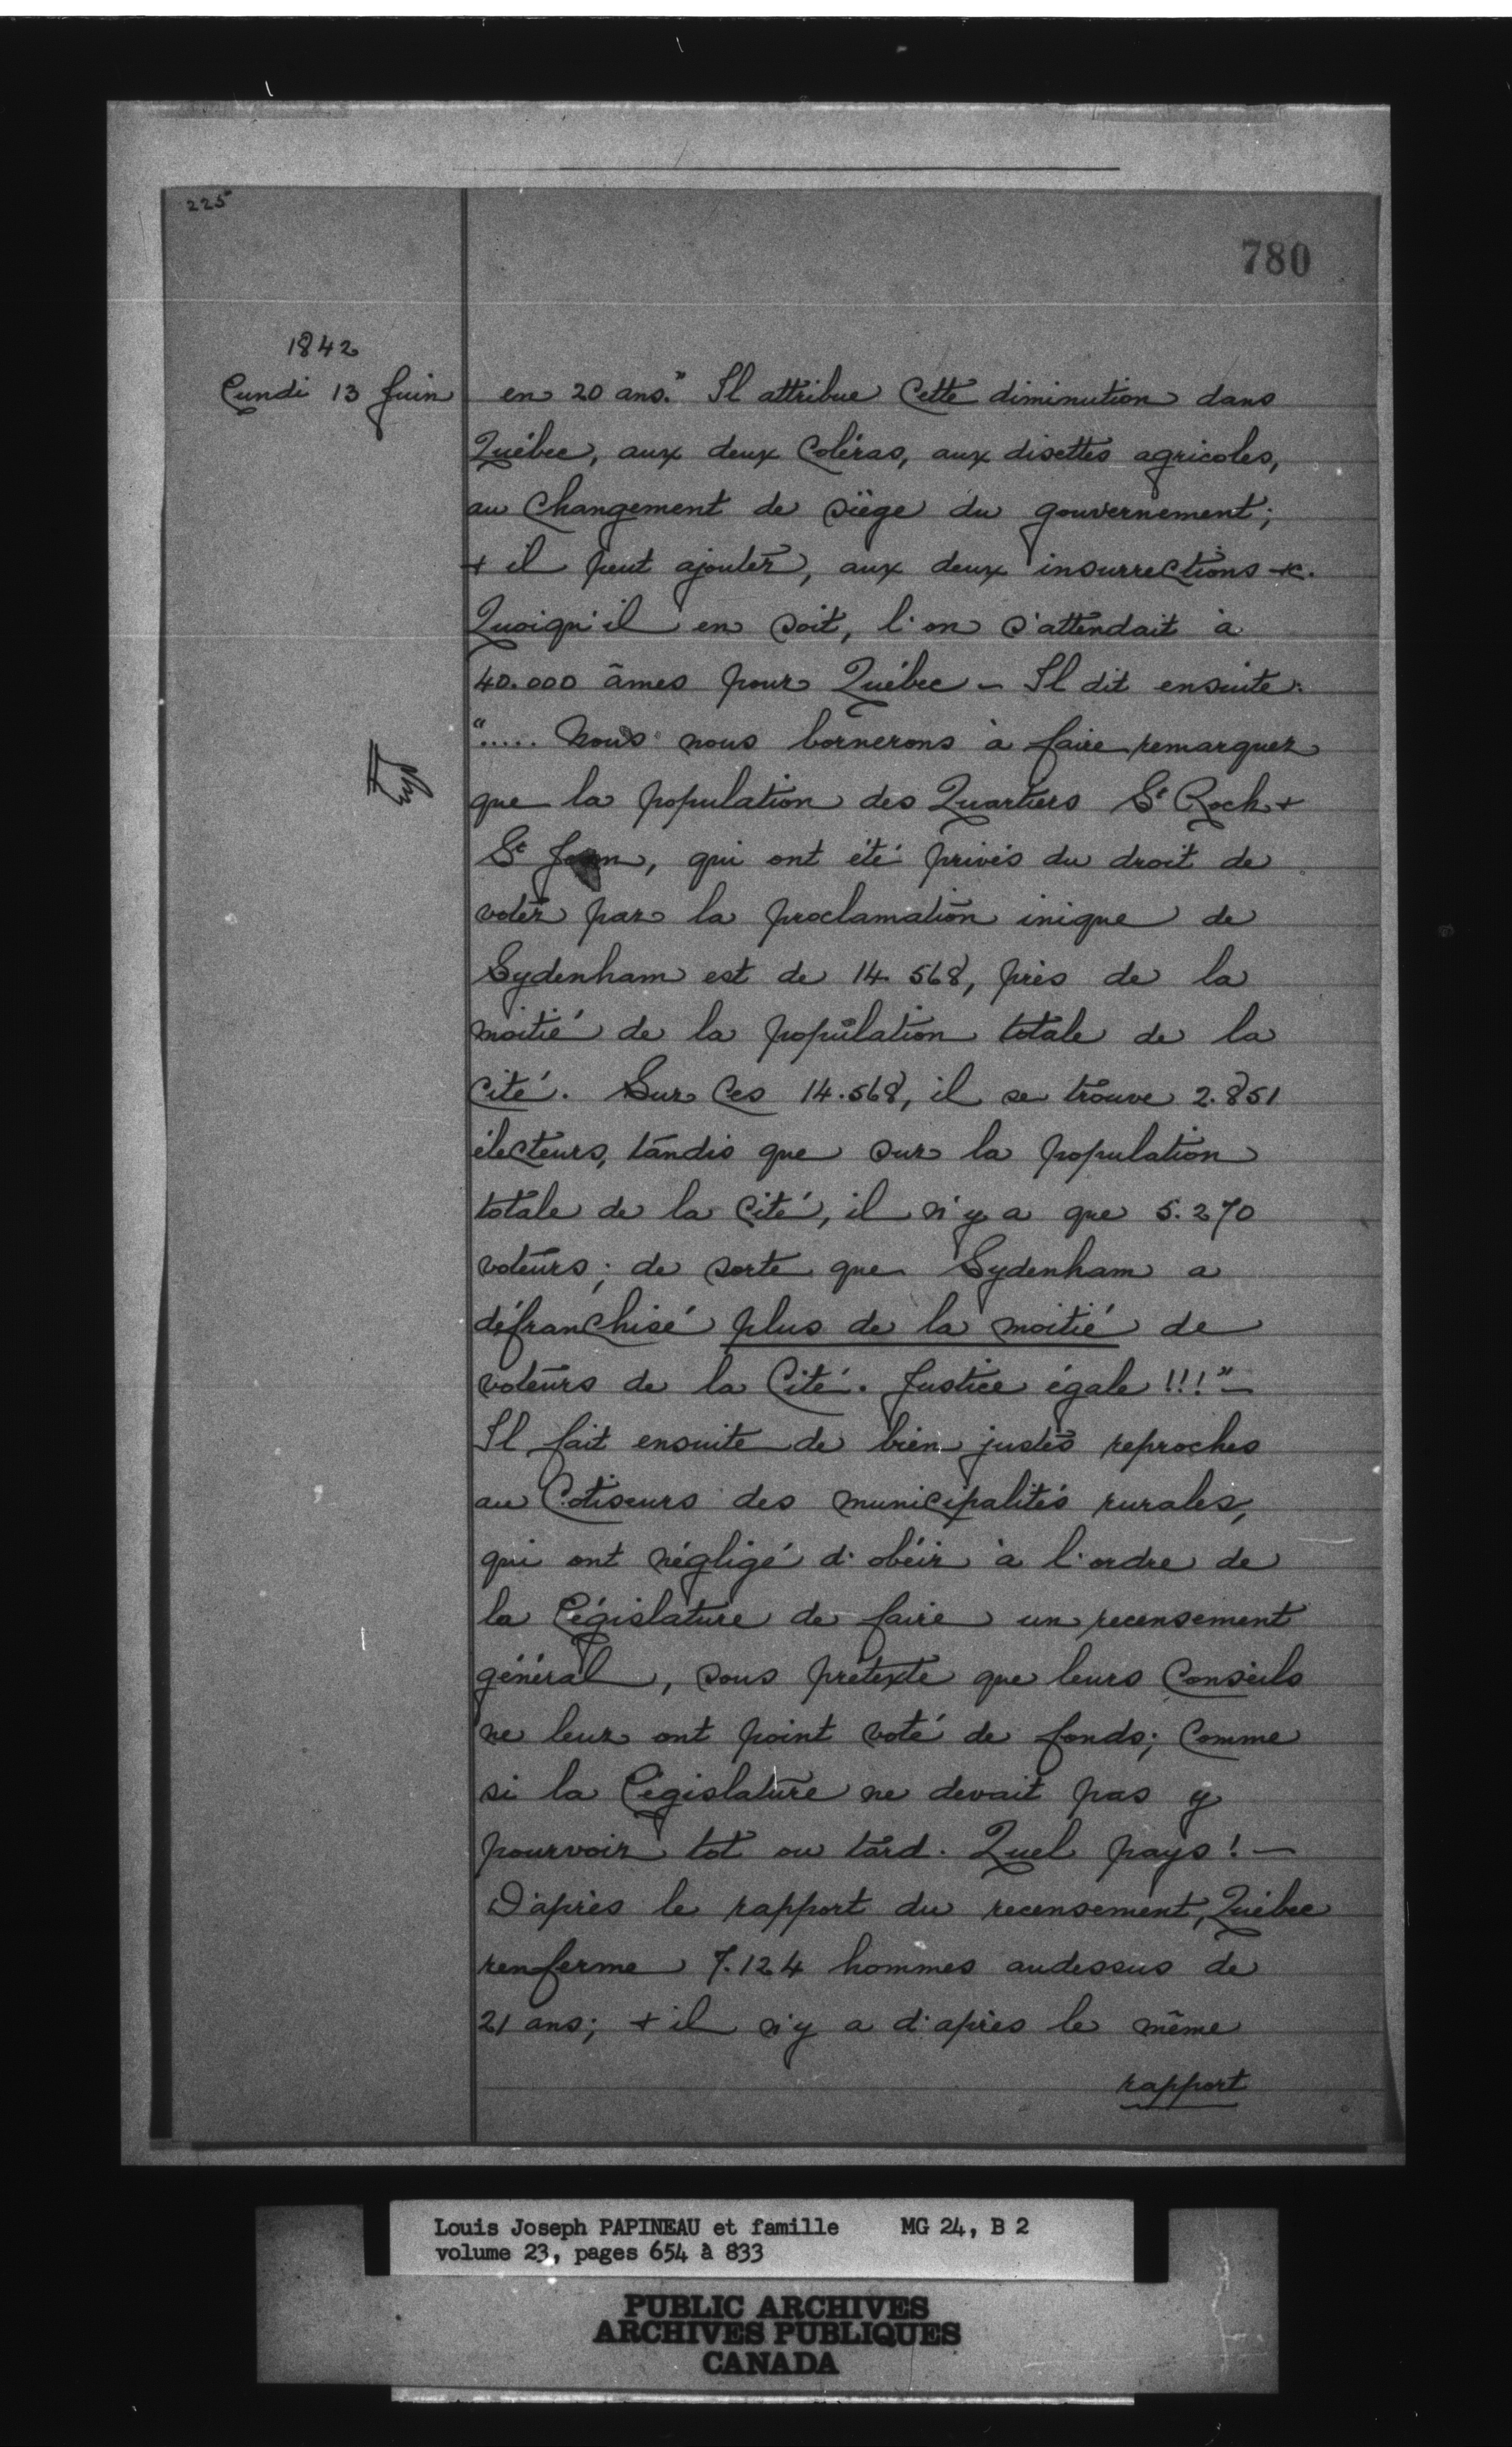 225
780
1842
Lundi 13 Juin
en 20 ans." Il attribue cette diminution dans
Québec, aux deux Coléras, aux disettes agricoles,
au changement de siège du gouvernement;
+ il peut ajouter, aux deux insurrections &c.
Quoiqu'il en soit, l'on s'attendait à
40.000 âmes pour Québec – Il dit ensuite:
"..... Nous nous bornerons à faire remarquer
que la population des Quartiers St Roch +
St Jean, qui ont été privés du droit de
voter par la proclamation inique de
Sydenham est de 14.568, près de la
moitié de la population totale de la
Cité. Sur ces 14.568, il se trouve 2.851
électeurs, tandis que sur la population
totale de la Cité, il n'y a que 5.270
voteurs; de sorte que Sydenham a
défranchisé plus de la moitié de
voteurs de la Cité. Justice égale!!!" –
Il fait ensuite de bien justes reproches
au Cotiseurs des municipalités rurales,
qui ont négligé d'obéir à l'ordre de
la Législature de faire un recensement
général, sous prétexte que leurs Conseils
ne leur ont point voté de fonds; Comme
si la Législature ne devait pas y
pourvoir tot ou tard. Quel pays! –
D'après le rapport du recensement, Québec
renferme 7.124 hommes audessus de
21 ans; + il n'y a d'après le même
rapport
Louis Joseph PAPINEAU et famille MG 24, B 2
volume 23, pages 654 à 833
PUBLIC ARCHIVES
ARCHIVES PUBLIQUES
CANADA